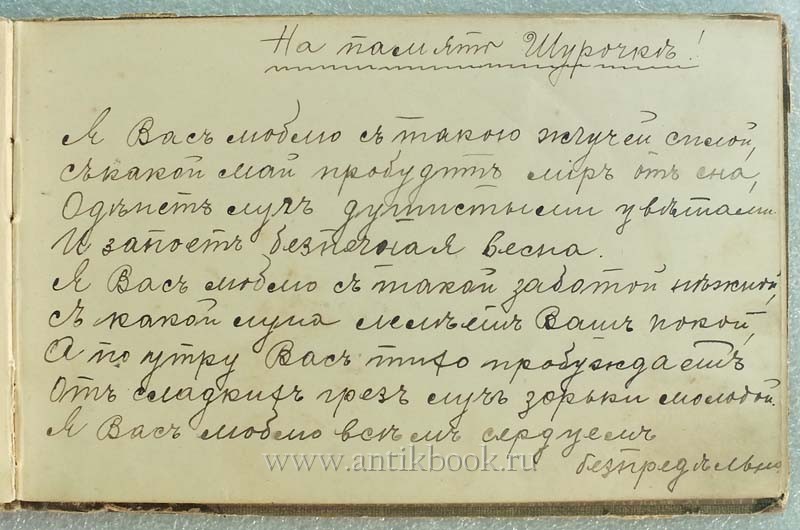 На память Шурочкѣ!
Я Васъ люблю съ такою жгучей силой,
съ какой май пробудитъ міръ отъ сна,
Одѣнетъ лугъ душистыми цвѣтами
И запоетъ безпечная весна.
Я Васъ люблю съ такой заботой нѣжной,
съ какой луна лелѣетъ Вашъ покой,
А по утру Васъ тихо пробуждаетъ
Отъ сладкихъ грезъ лучъ зорьки молодой.
Я Васъ люблю всѣмъ сердцемъ
безпредѣльно
www.antikbook.ru